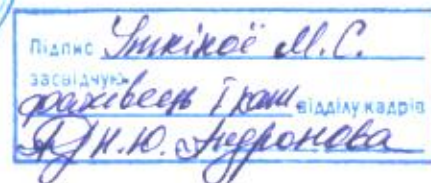 Підпис Уткіної М.С.
засвідчую
фахівець І кат. відділу кадрів
Н.Ю. Андронова